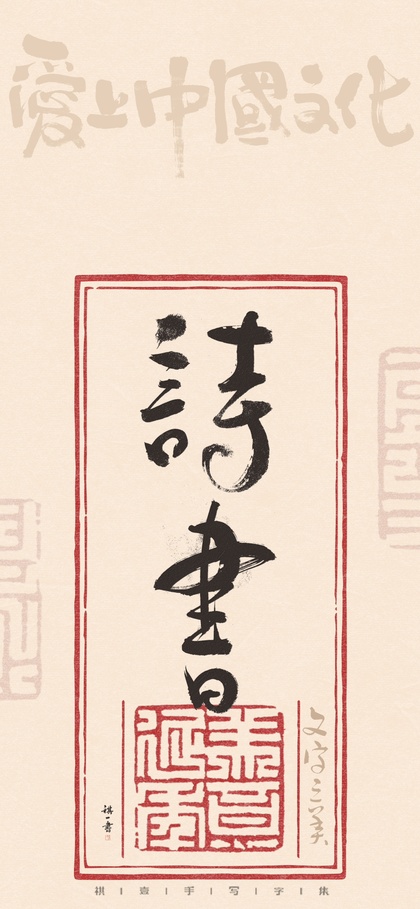 愛上中國文化
詩書
文字之美
祺一書
祺 | 壹 | 手 | 写 | 字 | 集